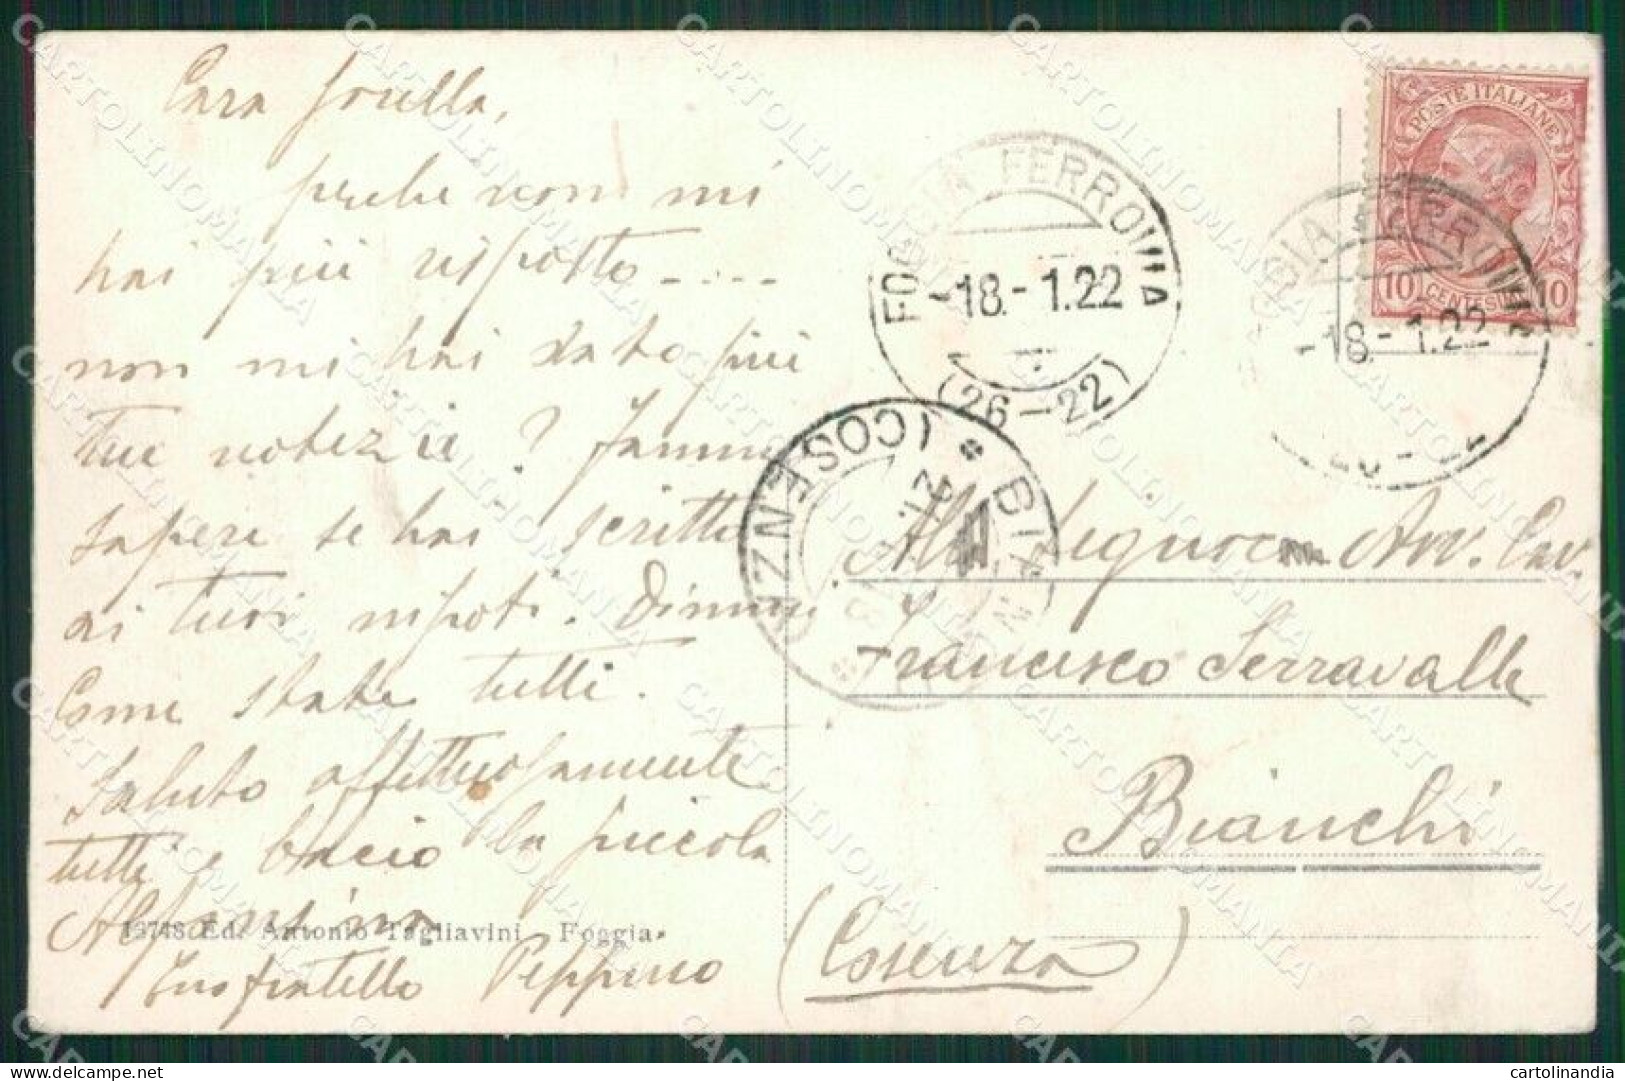 Cara sorella,
perche non mi
hai più risposto -....
non mi hai dato più
tue notizie? Fammi
sapere se hai scritto
ai tuoi nipoti. Dimmi
come state tutti.
Saluto affettuosamente
tutti e bacio la piccola
Alfonsina
Tuo fratello Peppino
19748 Ed. Antonio Tagliavini - Foggia.
POSTE ITALIANE
10 CENTESIMI 10
FOGGIA FERROVIA
-18.-1.22
(26-22)
FOGGIA FERROVIA
-18.-1.22
* BIANCHI * (COSENZA)
Al Signor Avv. Cav.
Francesco Serravalle
Bianchi
(Cosenza)
CARTOLINOMANIA
cartolinandia